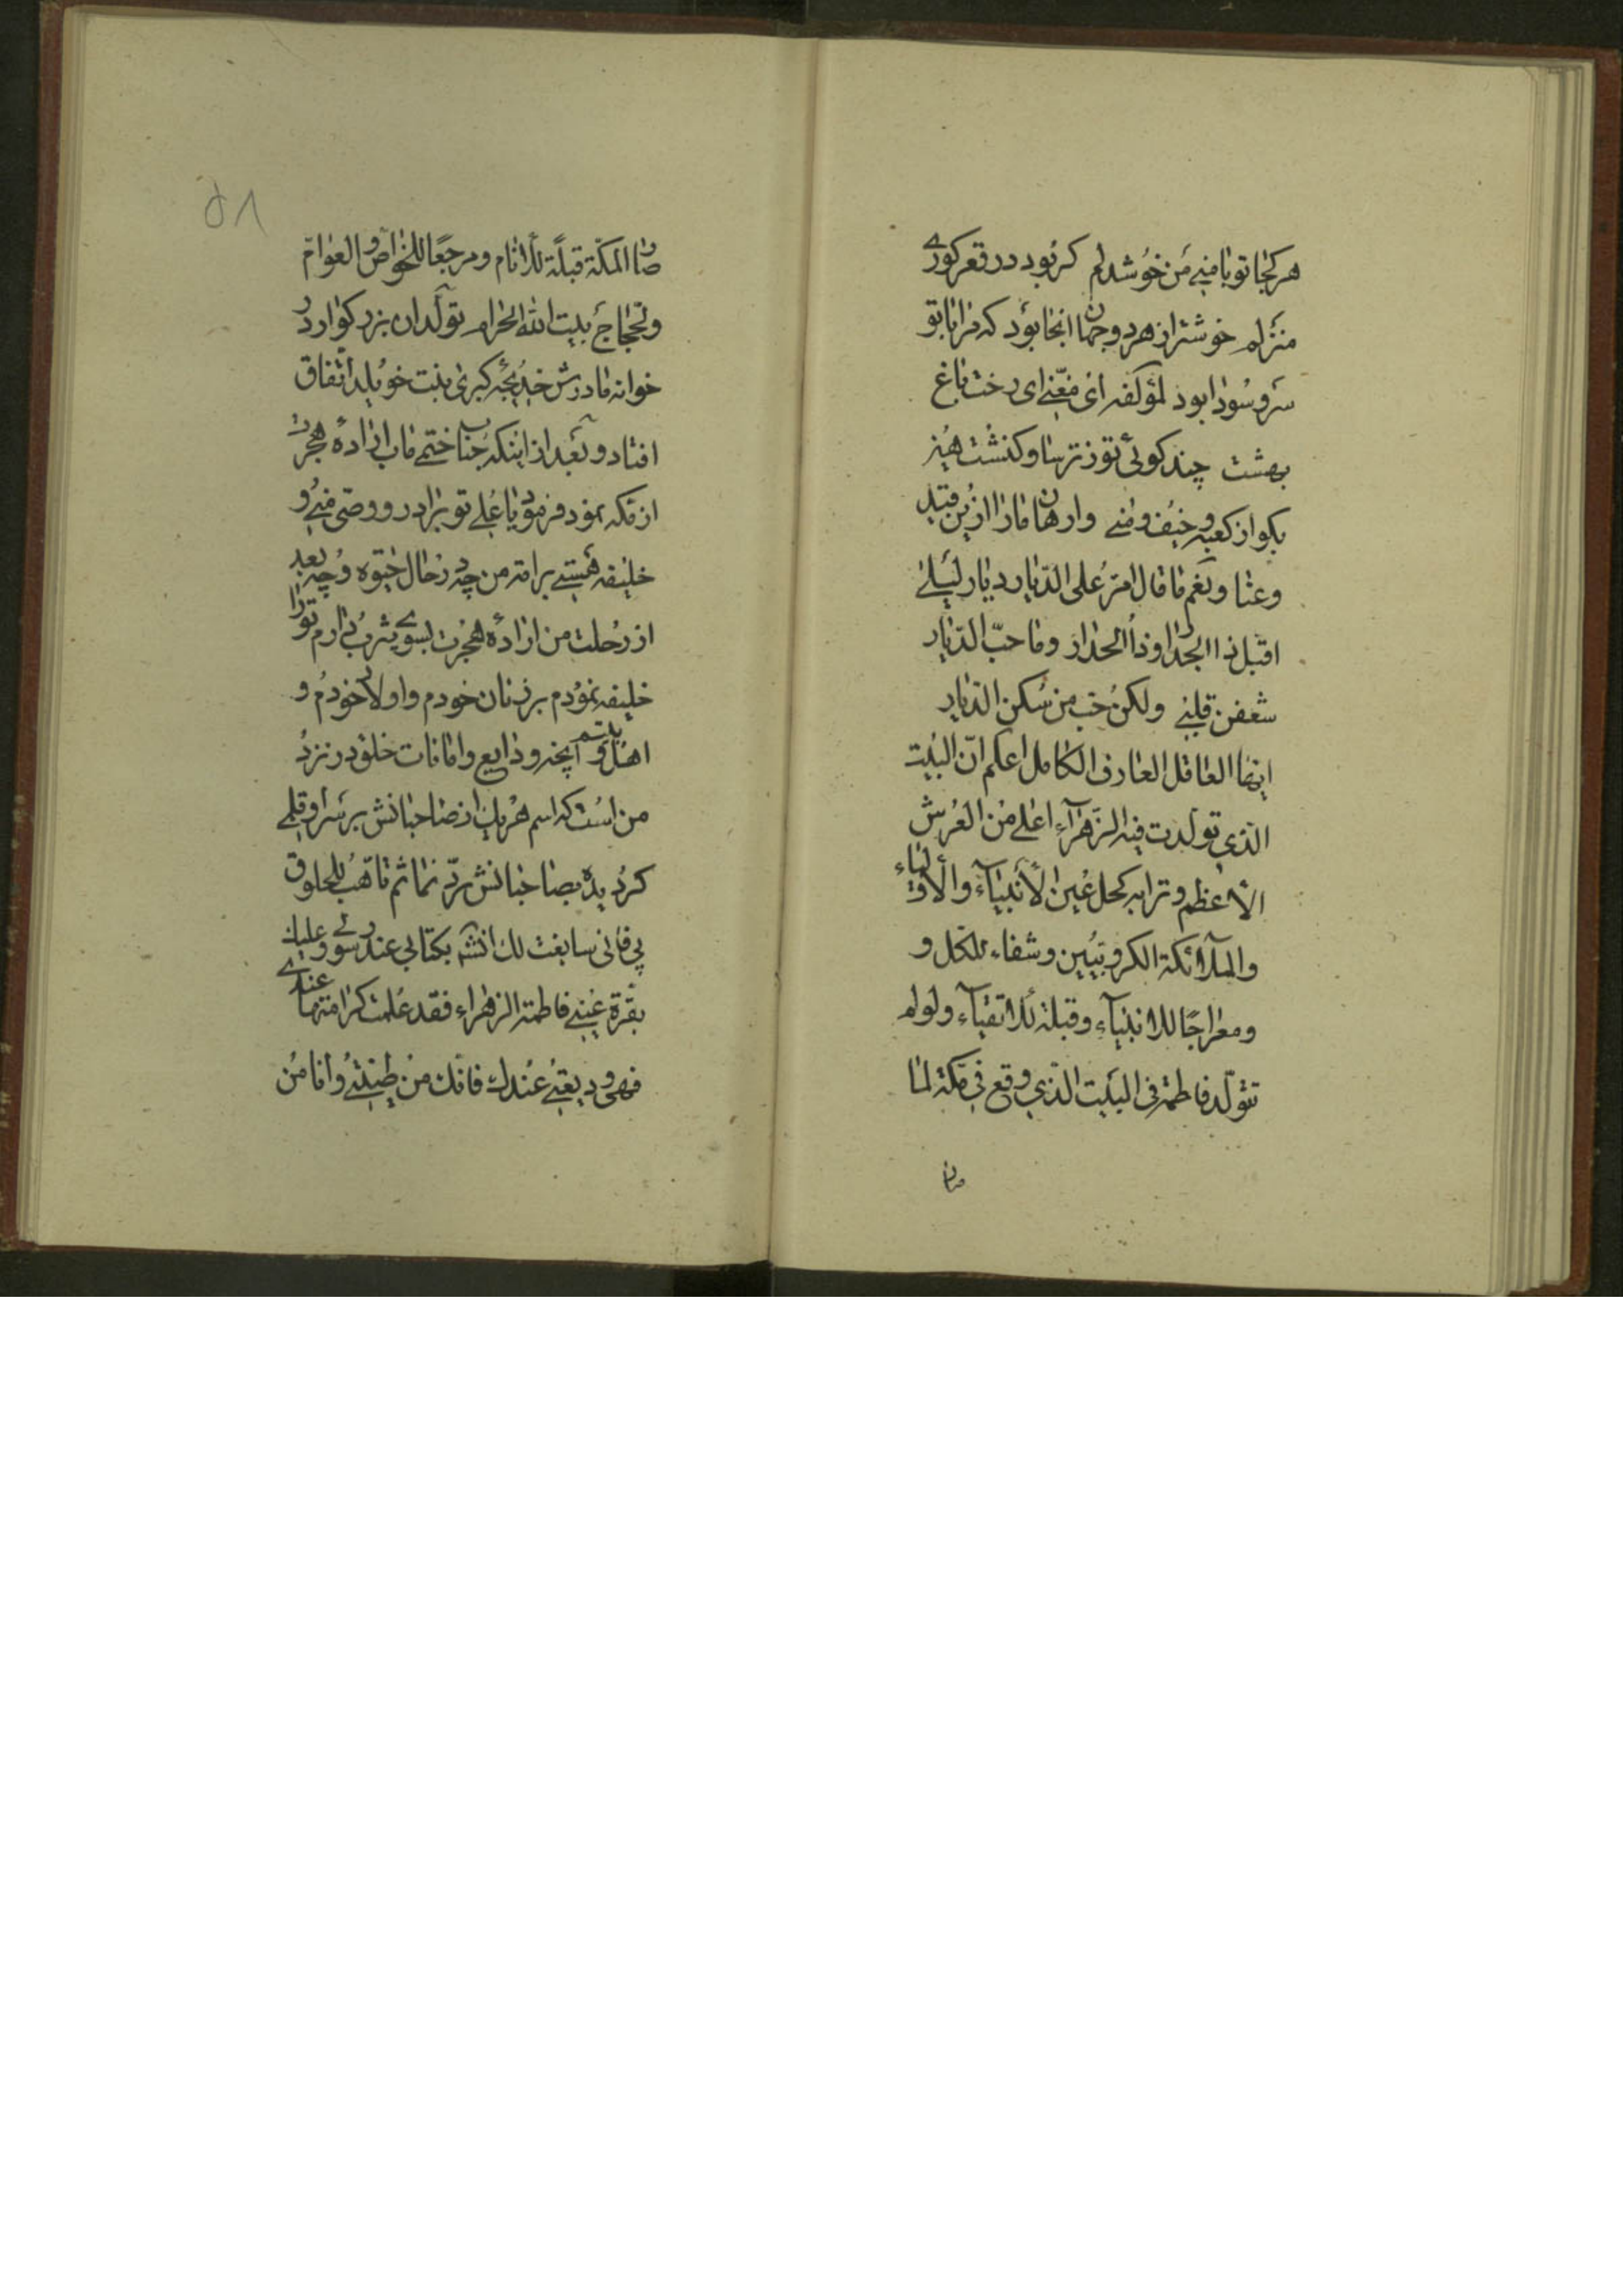 هر کجا تو با منی من خوشدلم کر بود در قعر کوری
منزلم خوشتر از هر دو جهان انجا بود که مرا با تو
سر و سودا بود لمؤلفه ای مغنی ای رخت باغ
بهشت چند کوئی تو ز ترسا و کنشت هین
بکو از کعبه و خیف و منی وارهان مارا ازین قید
وعنا ونعم ما قال امر علی الدیار دیار لیلی
اقبل ذا الجدار وذا الجدار وما حبّ الدّیار
شغفن قلبی ولکن حب من سکن الدیار
ایها العاقل العارف الکامل اعلم انّ البیت
الّذی تولّدت فیه الزهرآء اعلی من العرش
الأعظم وترابه کحل عین الأنبیآء والأولیاء
والملآئکة الکروبیّین وشفاء للکل و
ومعراجًا للانبیآء وقبلة للاتقیآء ولو لم
تتولّد فاطمة فی البیت الّذی وقع فی مکة لما
صان
۵۸
صان المکّة قبلة للانام ومرجعًا للخواصّ والعوامّ
ولحجاج بیت الله الحرام تولّد ان بزرکوار در
خوانه مادرش خدیجه کبری بنت خویلد اتفاق
افتاد و بعد از اینکه جناب ختمی ماب ارادهٔ هجرت
از مکه نمود فرمود یا علی تو برادر و وصی منی و
خلیفه هستی بر امته من چه در حال حیوه و چه بعد
از رحلت من ارادهٔ هجرت بسوی یثرب دارم تو را
خلیفه نمودم بر زنان خودم و اولاد خودم و
اهل بیتم و آنچه ودایع و امانات خلق در نزد
من است که اسم هریک از صاحبانش بر سر او قلمی
کردیده بصاحبانش ردّ نما ثم تاهب للحلوق
بی فانی سابغت لک انشآ بکتابی عند رسولی وعلیک
بقرة عینی فاطمة الزهراء فقد علمت کرامتها عندی
فهی ودیعتی عندک فانک من طینتی وانا من